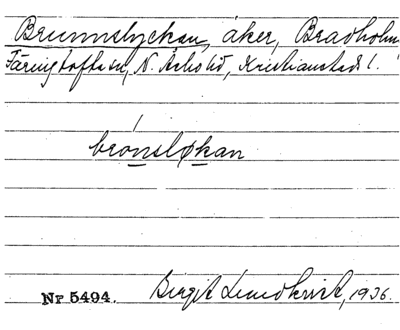 Brunnslyckan, åker, Bradholm
Färingtofta sn, N. Åsbo hd, Kristianstads l.
brónsløkan
Nr 5494. Birgit Lundkvist, 1936.